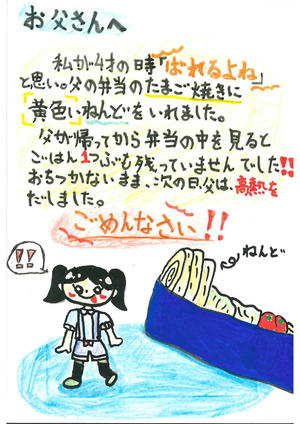 お父さんへ
私が4才の時「ばれるよね」
と思い。父の弁当のたまご焼きに
黄色いねんどをいれました。
父が帰ってから弁当の中を見ると
ごはん1つぶも残っていませんでした!!
おちつかないまま、次の日父は、高熱を
だしました。
ごめんなさい!!
!!
ねんど